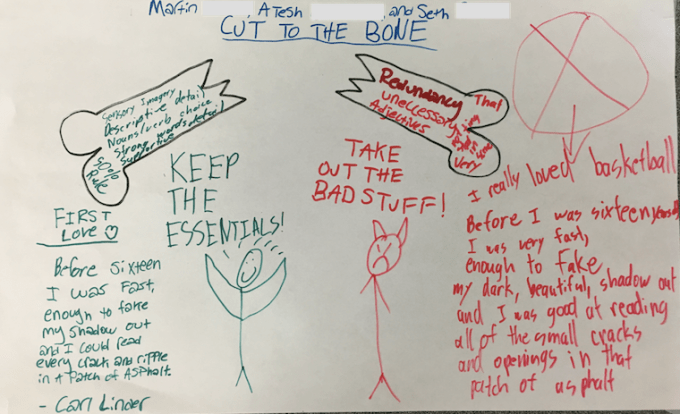 Martin , ATesh , and Seth
CUT TO THE BONE
Sensory Imagery
Descriptive detail
Nouns/verb choice
strong words
supportive detail
50%
Rule
KEEP
THE
ESSENTIALS!
FIRST
LOVE
Before sixteen
I was Fast,
enough to fake
my shadow out
and I could read
every crack and riffle
in a Patch of ASPhalt.
- Carl Linder
Redundancy
uneccessary
Adjectives
That
very
TAKE
OUT THE
BAD STUFF!
I really loved basketball
Before I was sixteen years
I was very fast,
enough to fake
my dark, beautiful, shadow out
and I was good at reading
all of the small cracks
and openings in that
patch of asphalt